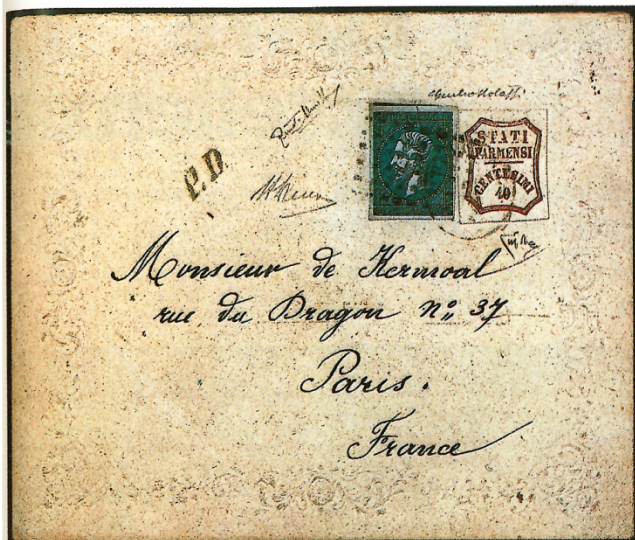 P.D.
STATI
PARMENSI
CENTESIMI
40
Monsieur de Kermoal
rue du Dragon nº 37
Paris.
France